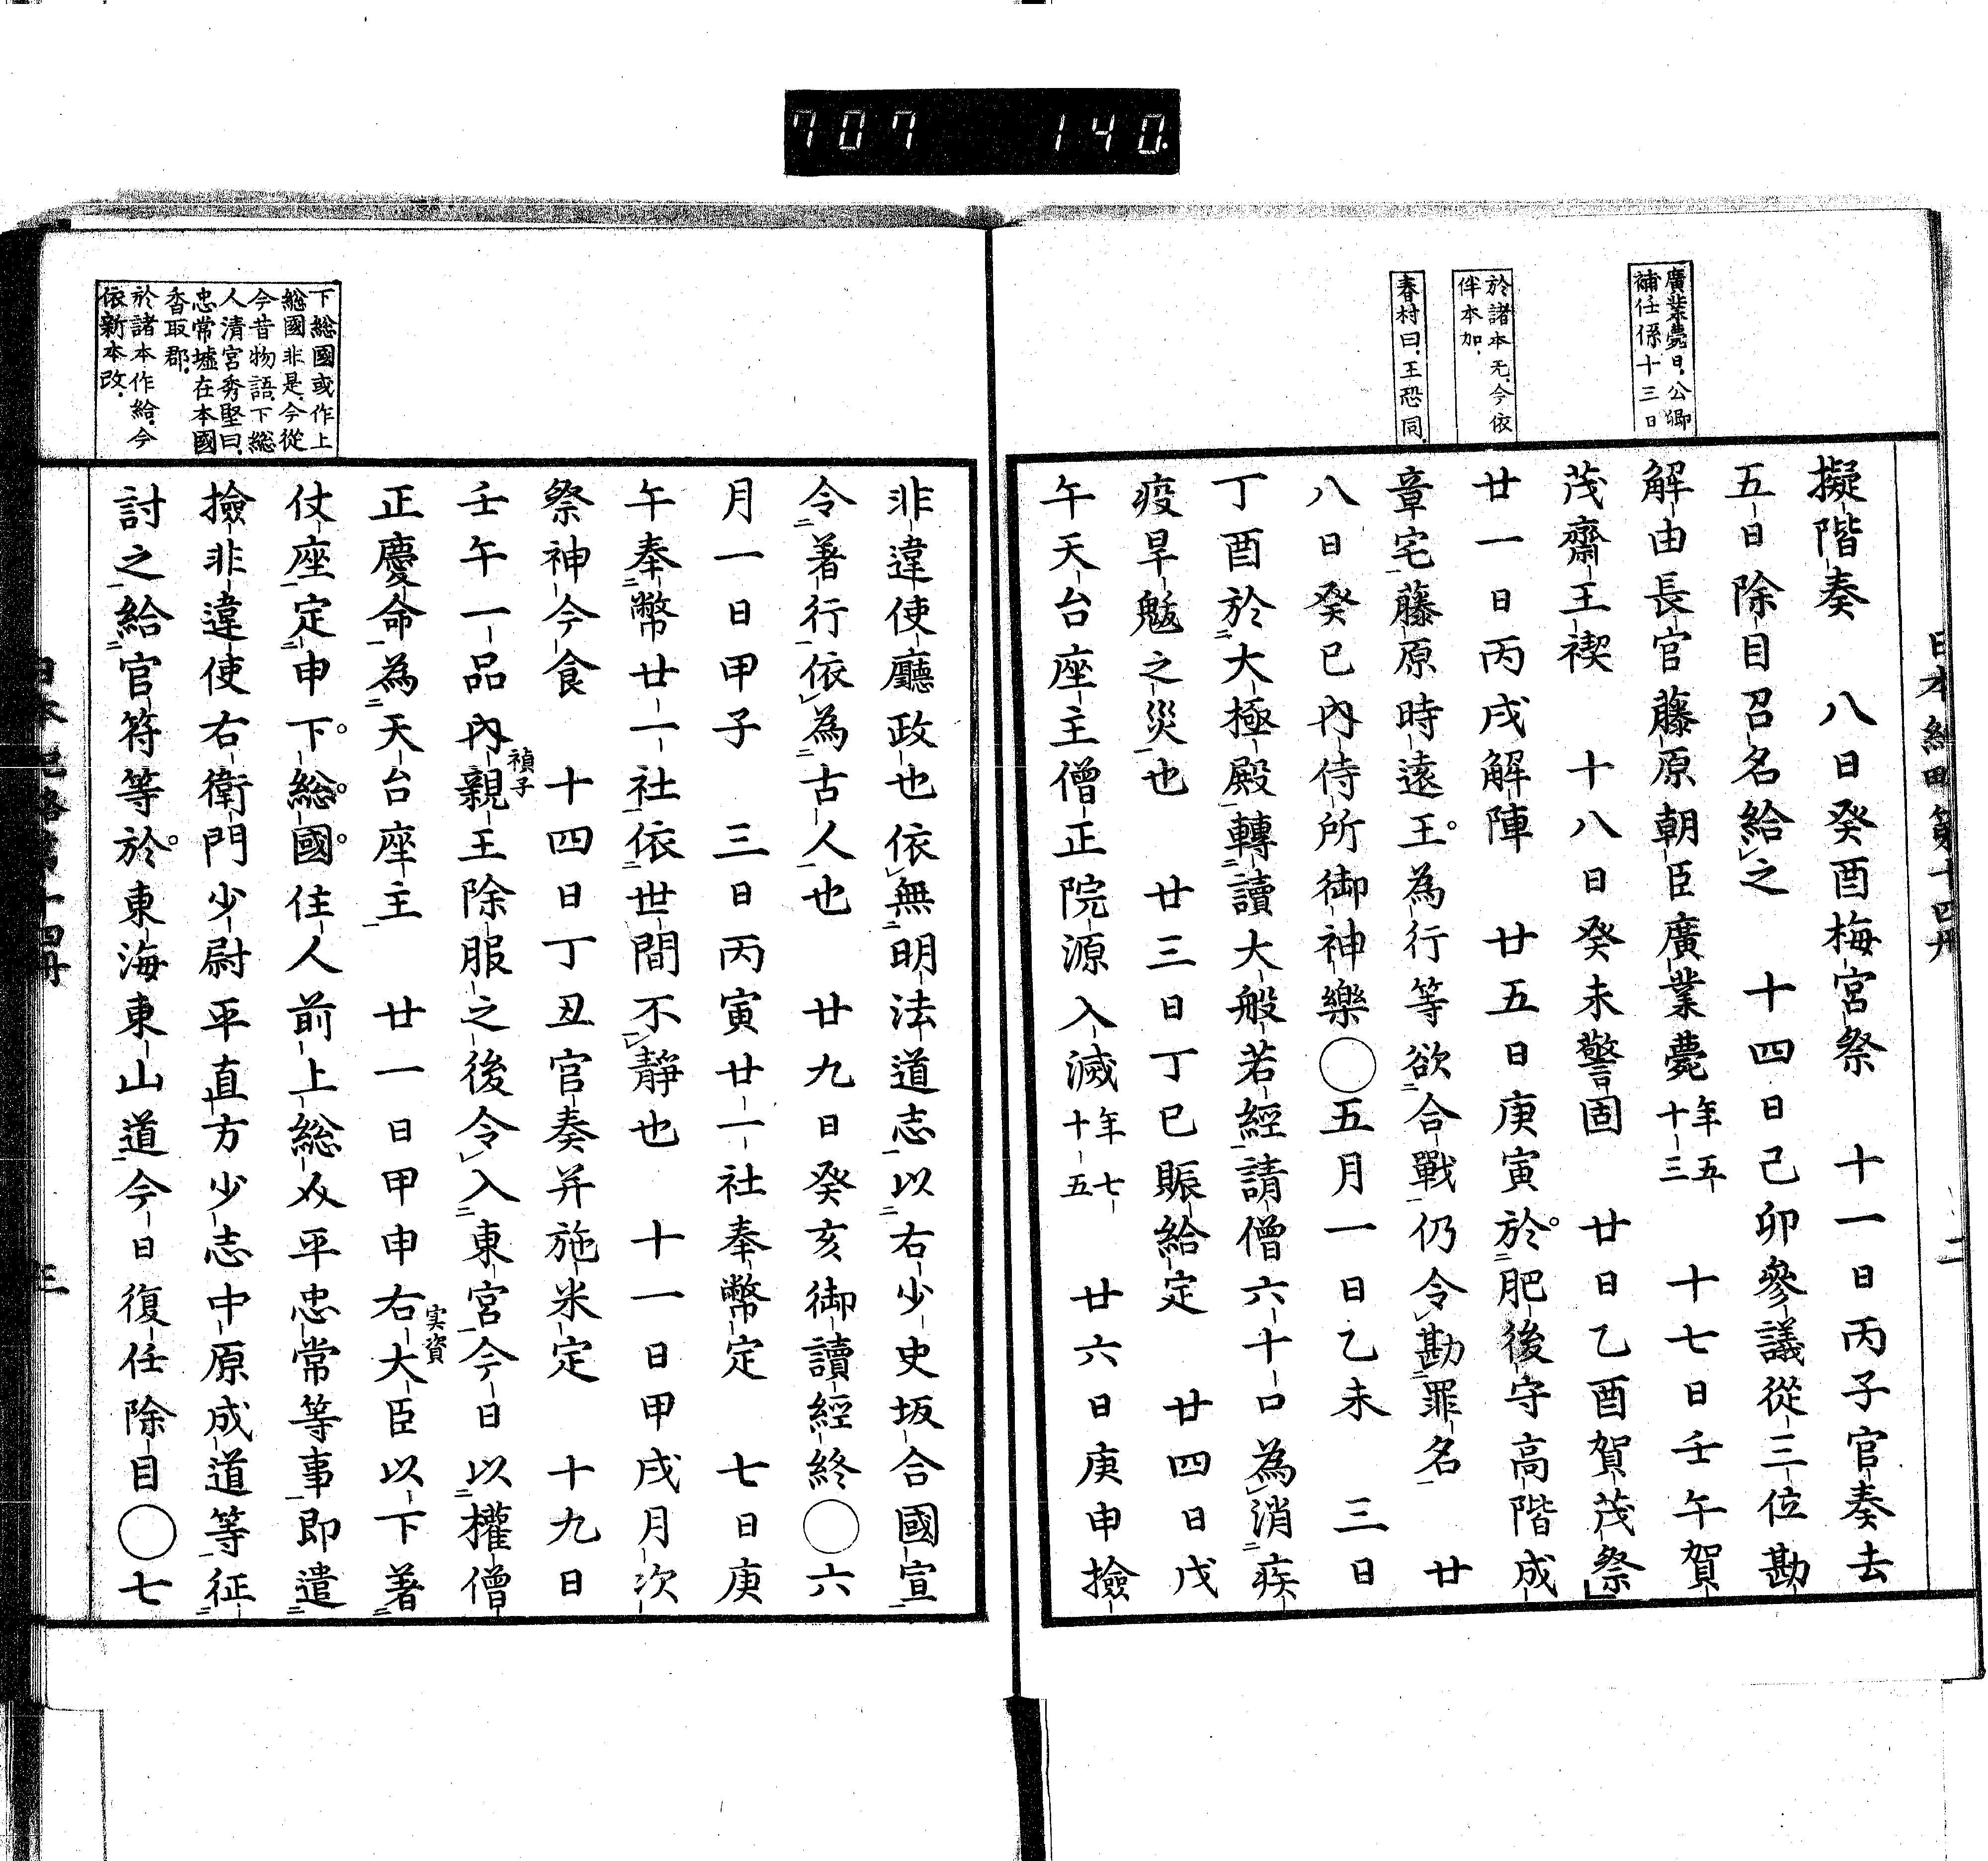 707 140
廣業薨日、公卿
補任係十三日
於諸本无、今依
伴本加、
春村曰、王恐同、
擬階奏 八日癸酉梅宮祭 十一日丙子官奏去
五日除目召名給之 十四日己卯參議從三位勘
解由長官藤原朝臣廣業薨年五十三 十七日壬午賀
茂齋王禊 十八日癸未警固 廿日乙酉賀茂祭
廿一日丙戌解陣 廿五日庚寅於肥後守高階成
章宅藤原時遠王為行等欲合戰仍令勘罪名 廿
八日癸巳內侍所御神樂○五月一日乙未 三日
丁酉於大極殿轉讀大般若經請僧六十口為消疾
疫旱魃之災也 廿三日丁巳賑給定 廿四日戊
午天台座主僧正院源入滅年七十五 廿六日庚申撿
二
下総國或作上
総國非是、今從
今昔物語、下総
人清宮秀堅曰、
忠常墟在本國
香取郡、
於諸本作給、今
依新本改、
非違使廳政也依無明法道志以右少史坂合國宣
令著行依為古人也 廿九日癸亥御讀經終○六
月一日甲子 三日丙寅廿一社奉幣定 七日庚
午奉幣廿一社依世間不靜也 十一日甲戌月次
祭神今食 十四日丁丑官奏并施米定 十九日
壬午一品內親王禎子除服之後令入東宮今日以權僧
正慶命為天台座主 廿一日甲申右大臣実資以下著
仗座定申下総國住人前上総介平忠常等事即遣
撿非違使右衛門少尉平直方少志中原成道等征
討之給官符等於東海東山道今日復任除目○七
三